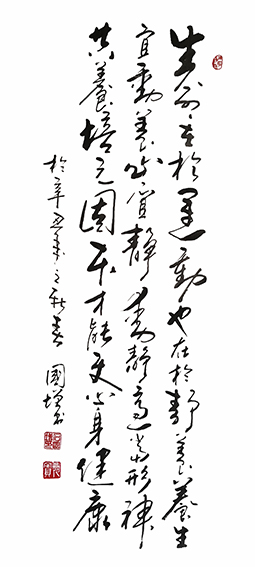 生命在於運動也在於靜養養生
宜動養心宜靜動靜適當形神
共養培元固本才能更心身健康
於辛丑年之新春
國增書